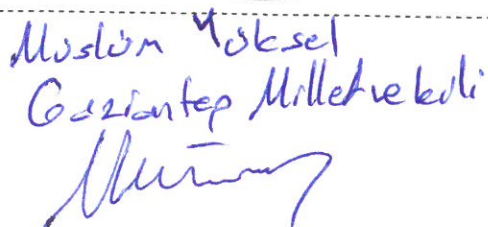 Müslüm Yüksel
Gaziantep Milletvekili